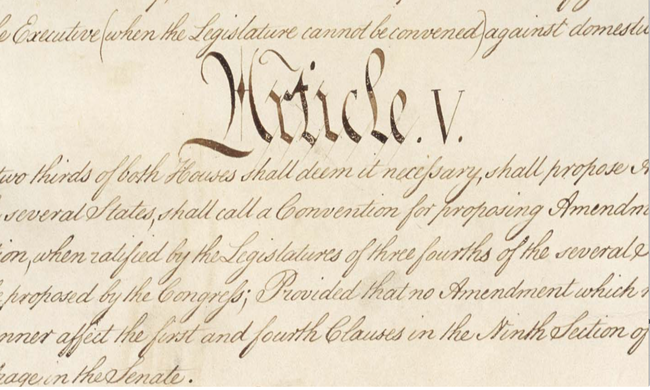 e Executive (when the Legislature cannot be convened) against domestic
Article. V.
two thirds of both Houses shall deem it necessary, shall propose
several States, shall call a Convention for proposing Amendm
ion, when ratified by the Legislatures of three fourths of the several
e proposed by the Congress; Provided that no Amendment which
nner affect the first and fourth Clauses in the Ninth Section of
rage in the Senate.